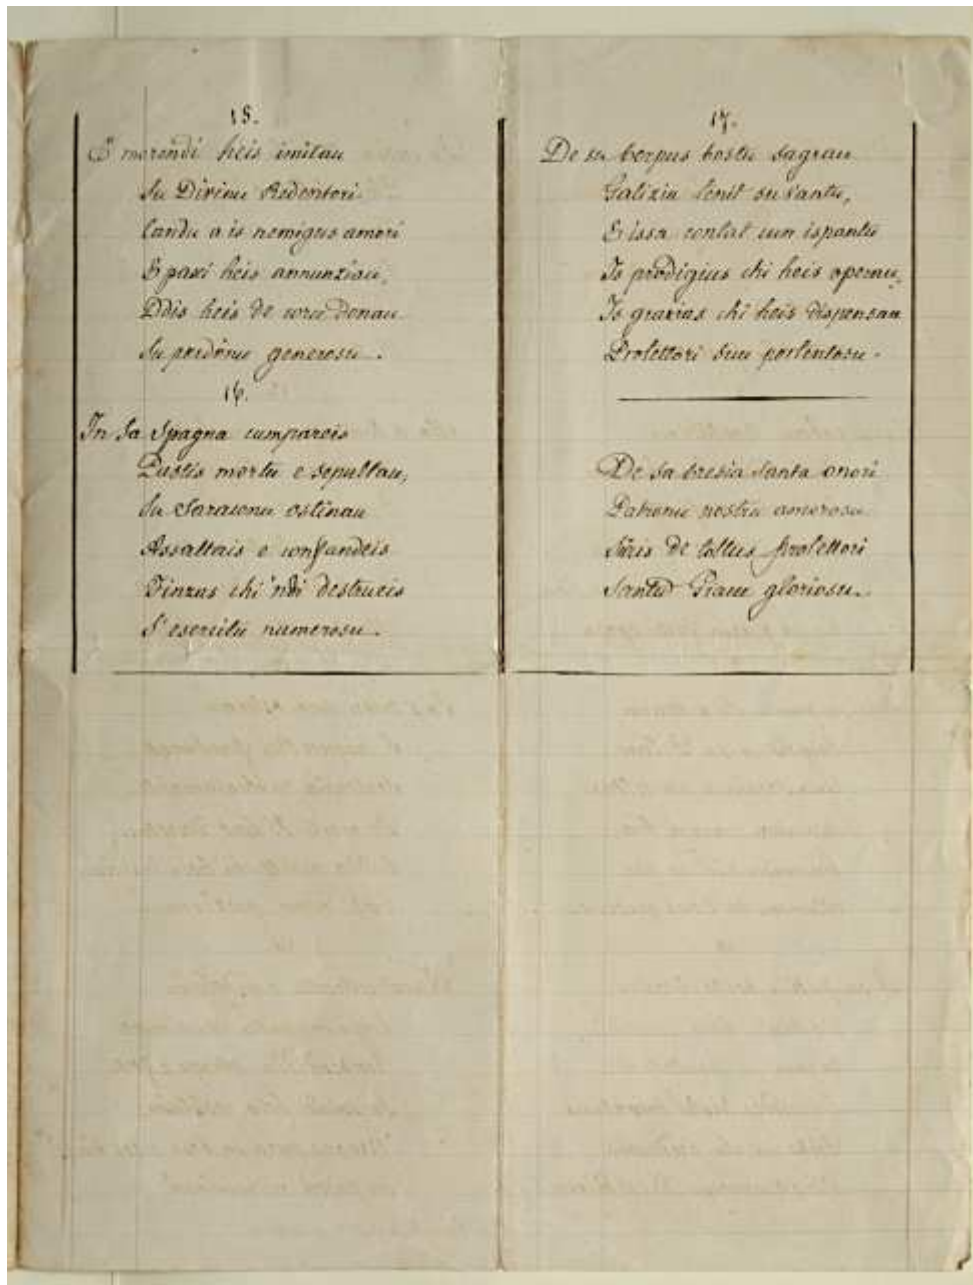 15.
E morendi heis imitau
Su Divinu Redentori
Candu a is nemigus amori
E paxi heis annunziau,
Ddis heis de coru donau
Su perdonu generosu.
16.
In Sa Spagna cumpareis
Pustis mortu e sepultau,
Su Saraconu ostinau
Assaltais e confundeis
Finzas chi 'ndi destrueis
S'esercitu numerosu.
17.
De su corpus bostu sagrau
Galizia tenit su vantu,
E issa contat cun ispantu
Is prodigius chi heis operau,
Is grazias chi heis dispensau
Protettori suu portentosu.
De sa cresia santa onori
Patronu nostru amorosu
Siais de tottus protettori
Santu Giacu gloriosu.